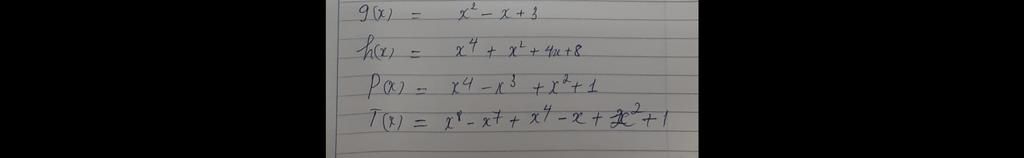 g(x) = x² - x + 3
h(x) = x⁴ + x² + 4x + 8
P(x) = x⁴ - x³ + x² + 1
T(x) = x⁸ - x⁷ + x⁴ - x + x² + 1